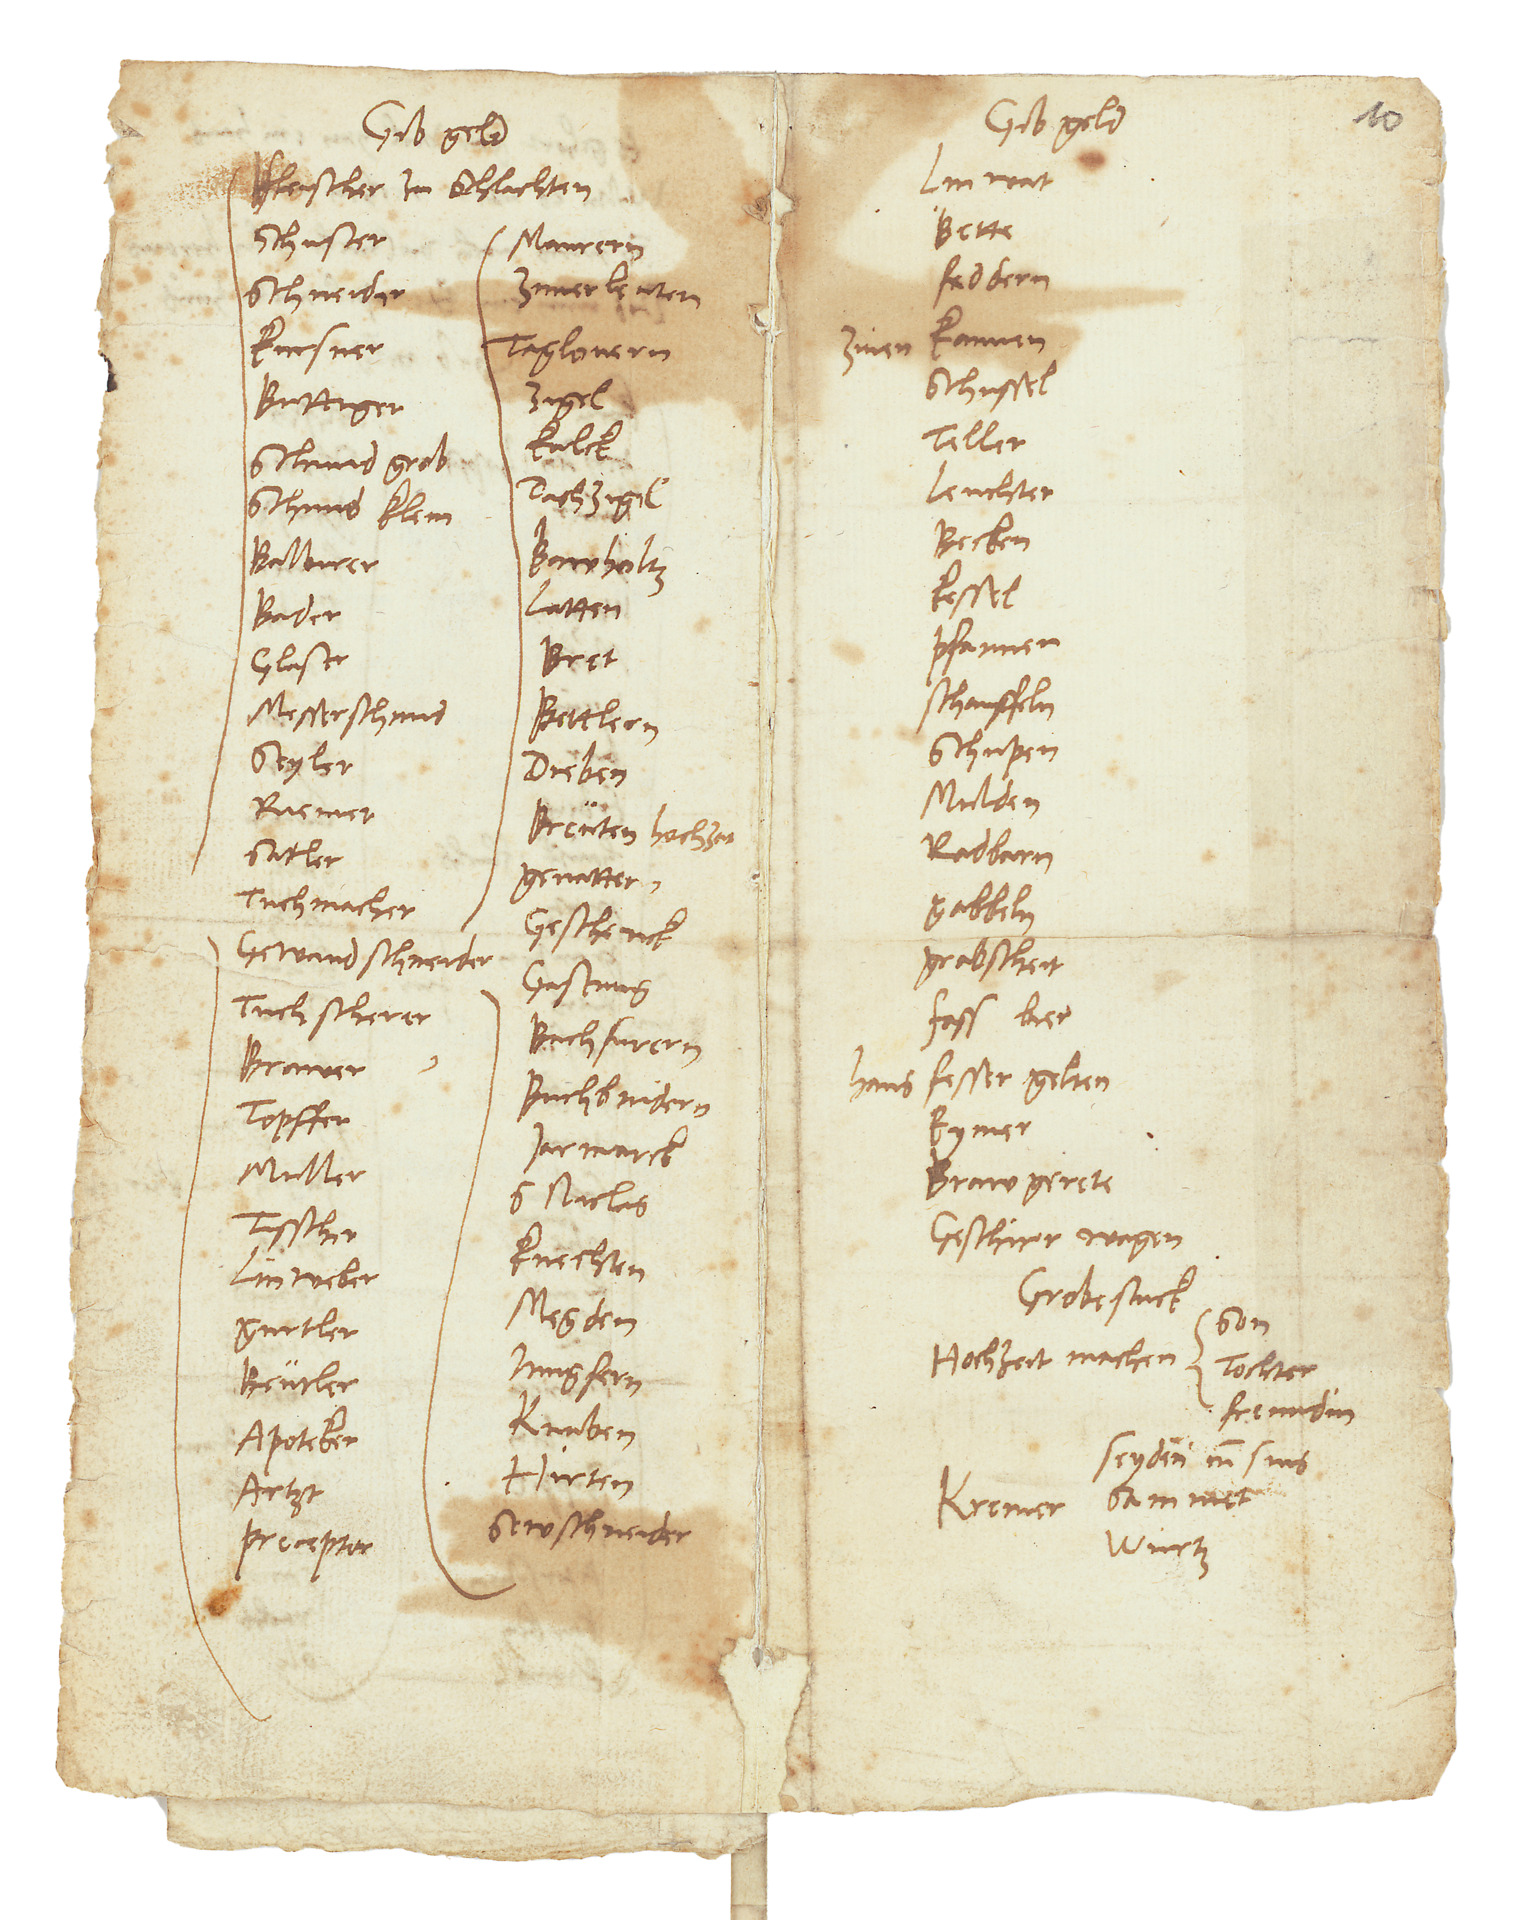 Gib geld
Fleischer Im Schlachten
Schuster
Schneider
Kursner
Buttiger
Schmid grob
Schmid klein
Balbirer
Bader
Glaser
Messerschmid
Seyler
Riemer
Satler
Tuchmacher
Gewandschneider
Tuchscherer
Brawer
Topffer
Muller
Tisscher
Linweber
gurtler
Beütler
Apoteker
Artzt
preceptor
Maurern
Zimerleuten
Taglonern
Zigel
Kalck
Dachzigel
Bawholtz
Latten
Bret
Bettlern
Dieben
Breüten hochzeit
gevatter
Geschenck
Gastung
Buchfurern
Buchbindern
Jarmarck
S Niclas
Knechten
Megden
Jungfern
Knaben
Hirten
Sewschneider
10
Gib geld
Linwat
Bette
feddern
Zinen Kannen
Schussel
Teller
Leuchter
Becken
Kessel
pfannen
schauffeln
Schupen
Mulden
Radbarn
gabbeln
grabscheit
fass bier
haus fesser gelten
Eymer
Braw gerete
Geschirr wagen
Grobe stuck
Hochzeit machen
Son
Tochter
freundin
Kremer
seyden
Sammet
Wurtz